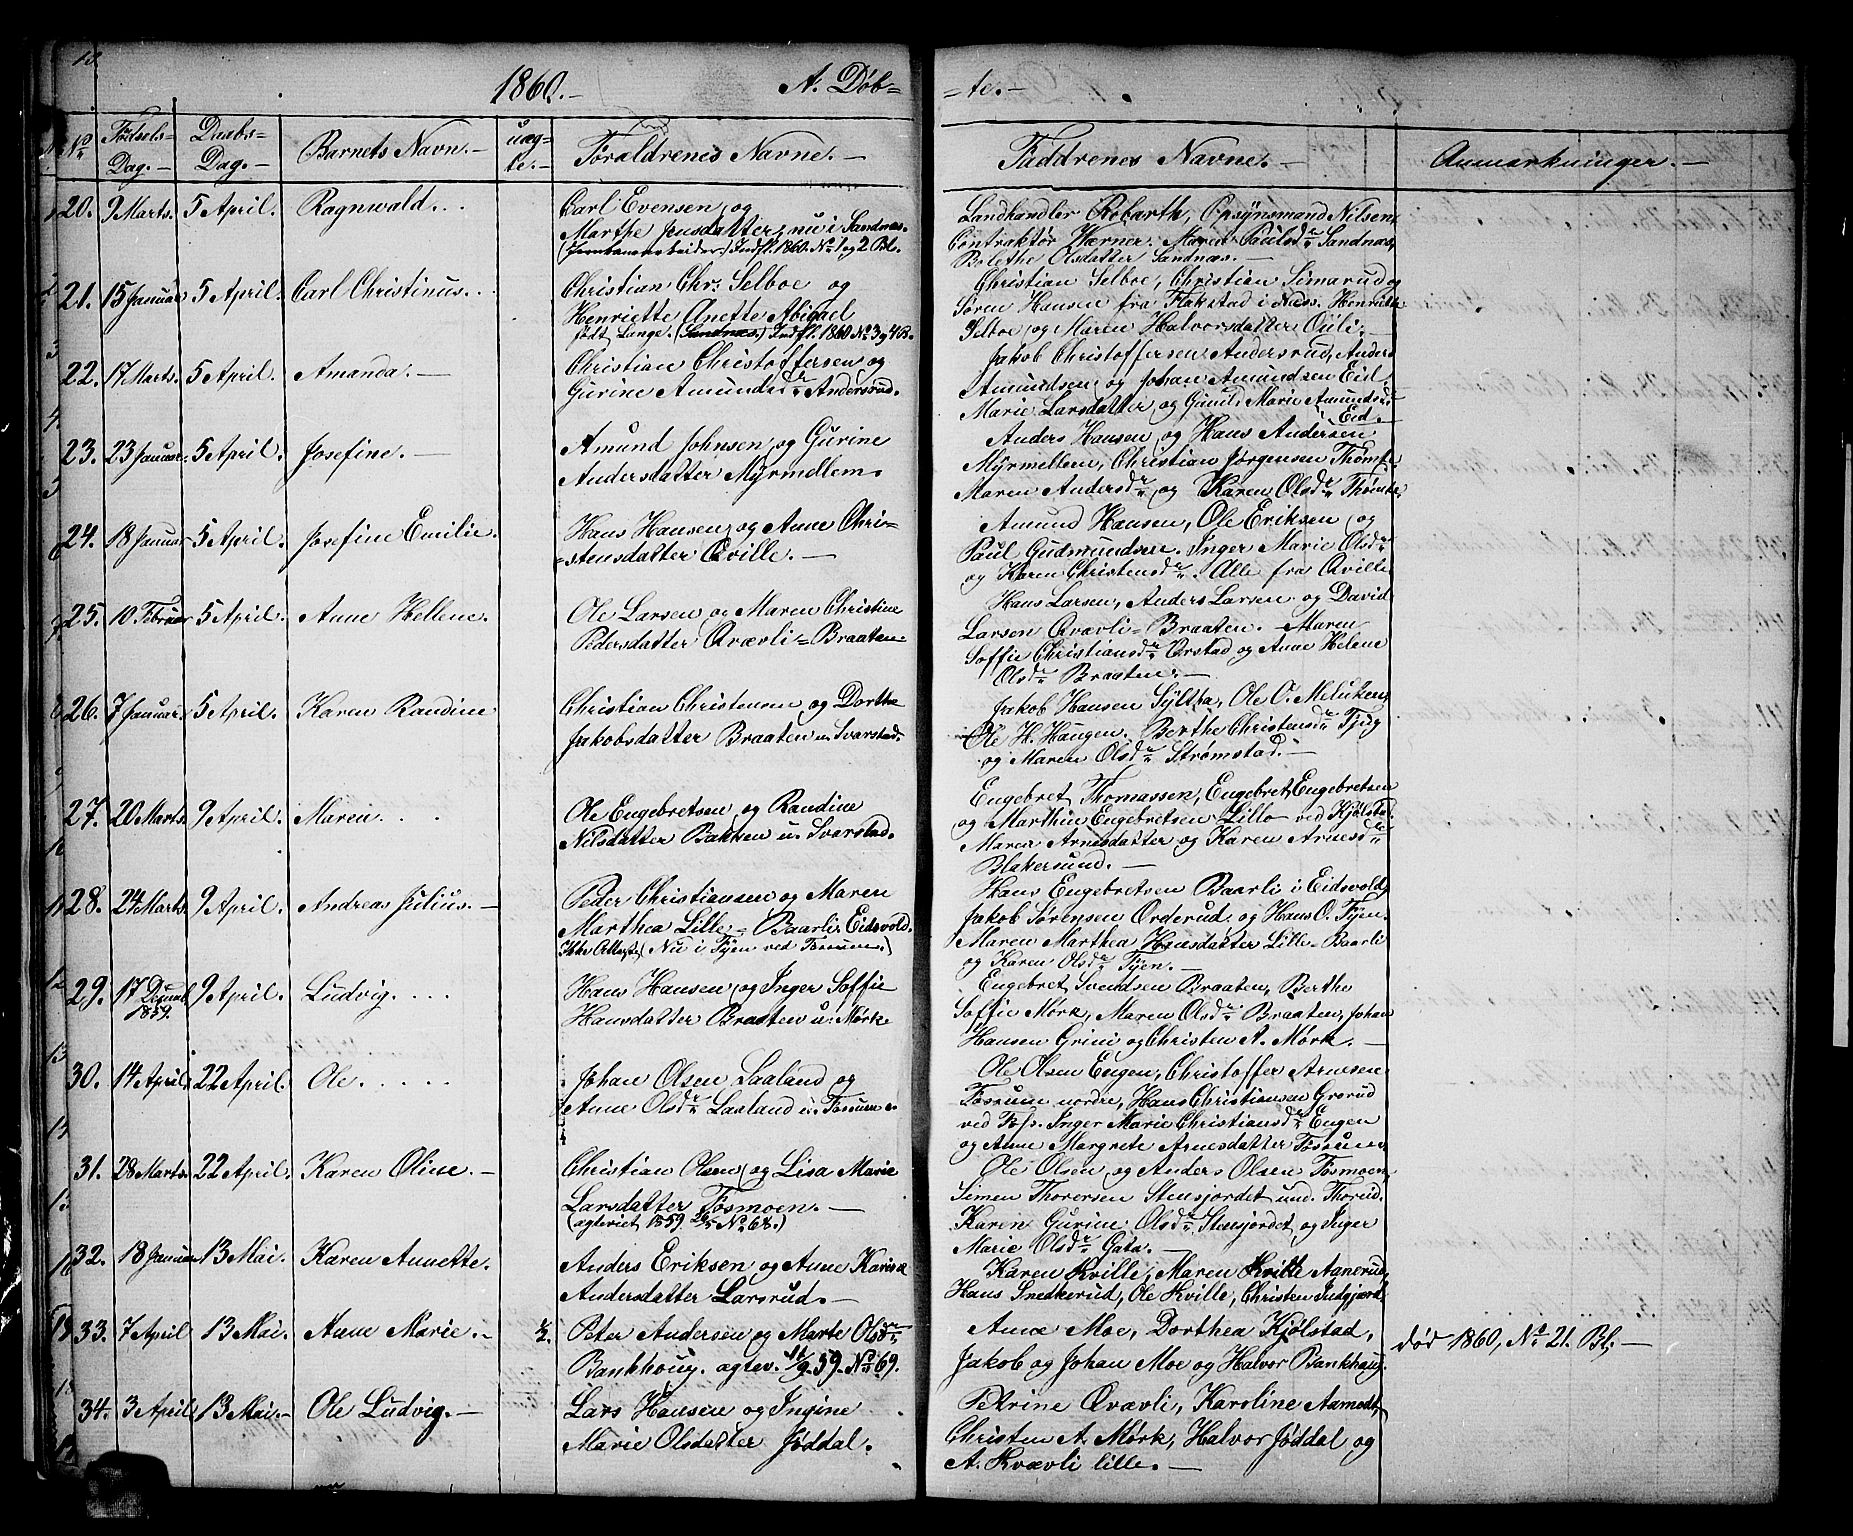 1860.— A. Døb=
=te.—
No Fødsels=Dag.— Daabs=Dag.— Barnets Navn.— uægte.— Forældrenes Navne.— Faddrenes Navne.— Anmærkninger.—
20. 9 Marts. 5 April. Ragnwald...
Carl Evensen og
Marthe Jensdatter, nu i Sandnæs.
(Jernbanearbeider) Indfl. 1860 No 1 og 2 Bl.
Landhandler Robarth, Opsynsmand Nilsen,
Contraktør Værner. Maren Paulsdr Sandnæs,
Bolethe Olsdatter Sandnæs.—
21. 15 Januar 5 April. Carl Christinus...
Christian Chr. Selboe og
Henriette Anette Abigael
født Lange. (Sandnæs.) Indfl. 1860 No 3 og 4 B.
Christian Selboe, Christian Simarud og
Søren Hansen fra Flakstad i Næs. Henriette
Selboe og Maren Halvorsdatter Ouli.—
22. 17 Marts. 5 April. Amanda.—
Christian Christoffersen og
Gurine Amundsdr Andersrud.
Jakob Christoffersen Andersrud, Anders
Amundsen og Johan Amundsen Eid.
Marie Larsdatter og Gunild Marie Amundsdr
Eid.—
23. 23 Januar. 5 April. Josefine.—
Amund Johnsen og Gurine
Andersdatter Myrmellem.
Anders Hansen og Hans Andersen
Myrmellem, Christian Jørgensen Thømte
Maren Andersdr og Karen Olsdr Thømte.
24. 18 Januar 5 April. Josefine Emilie.
Hans Hansen og Anne Chri=
=stensdatter Qville.—
Amund Hansen, Ole Eriksen og
Paul Gudmundsen. Inger Marie Olsdr
og Karen Christensdr. Alle fra Qville
25. 10 Februar 5 April. Anne Hellene.
Ole Larsen og Maren Christine
Pedersdatter Qvævli=Braaten.
Hans Larsen, Anders Larsen og David
Larsen Qvævli=Braaten.—Maren
Soffie Christiansdr Ørstad og Anne Helene
Olsdr Braaten.—
26. 7 Januar. 5 April. Karen Randine
Christian Christensen og Dorthe
Jakobsdatter Braaten u. Svarstad.
Jakob Hansen Syltha, Ole O. Melnken,
Ole H. Haugen. Berthe Christensdr Tjug
og Maren Olsdr Strømstad.—
27. 20 Marts. 9 April. Maren...
Ole Engebretsen og Randine
Nilsdatter Bakken u. Svarstad.
Engebret Thomassen, Engebret Engebretsen
og Marthin Engebretsen Lillo ved Kjølstad.
Maren Arnesdatter og Karen Arnesdr
Blakersund.—
28. 24 Marts. 9 April. Andreas Julius.—
Peder Christiansen og Maren
Marthea Lille=Baarli. Eidsvold.
Ikke Attester (Nu i Tyen ved Fossum.)
Hans Engebretsen Baarli i Eidsvold,
Jakob Sørensen Orderud og Hans O. Tyen.
Maren Marthea Hansdatter Lille=Baarli
og Karen Olsdr Tyen.—
29. 17 Decembr 1859. 9 April. Ludvig....
Hans Hansen og Inger Soffie
Hansdatter Braaten u. Mørk
Engebret Svendsen Braaten, Berthe
Soffie Mørk, Maren Olsdr Braaten, Johan
Hansen Grini og Christen A. Mørk.—
30. 14 April. 22 April. Ole.....
Johan Olsen Laaland og
Anne Olsdr Laaland u. Fossum.
Ole Olsen Engen, Christoffer Arnesen
Fossum nordre, Hans Christiansen Grorud
ved Fos. Inger Marie Christiansdr Engen
og Anne Margrete Arnesdatter Fossum.
31. 28 Marts. 22 April. Karen Oline.—
Christian Olsen og Lisa Marie
Larsdatter Fosmoen.—
(agteviet 1859 26/5 No 67.)
Ole Olsen og Anders Olsen Fosmoen,
Simen Thoresen Stensjordet und. Thorud.
Karen Gurine Olsdr Stensjordet og Inger
Marie Olsdr Gata.—
32. 18 Januar 13 Mai. Karen Annette.
Anders Eriksen og Anne Karine
Andersdatter Larsrud.—
Karen Kville, Maren Kville Aanerud,
Hans Snedkerud, Ole Kville, Christen Indgjærd.
33. 7 April 13 Mai. Anne Marie.— 1/2.
Peter Andersen og Marte Olsdr
Bankhoug. agtev. 11/9.59. No 69.
Anne Moe, Dorthea Kjølstad,
Jakob og Johan Moe og Halvor Bankhaug.
død 1860, No 21. Bl.—
34. 3 April 13 Mai.— Ole Ludvig.—
Lars Hansen og Ingine
Marie Olsdatter Jøddal.
Petrine Qvævli, Karoline Aamodt,
Christen A. Mørk, Halvor Jøddal og
A. Kvævli lille.—